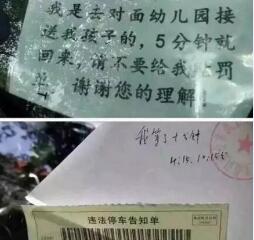 我是去对面幼儿园接
送我孩子的，5分钟就
回来，请不要给我
罚
谢谢您的理解！
我等了十分钟
违法停车告知单